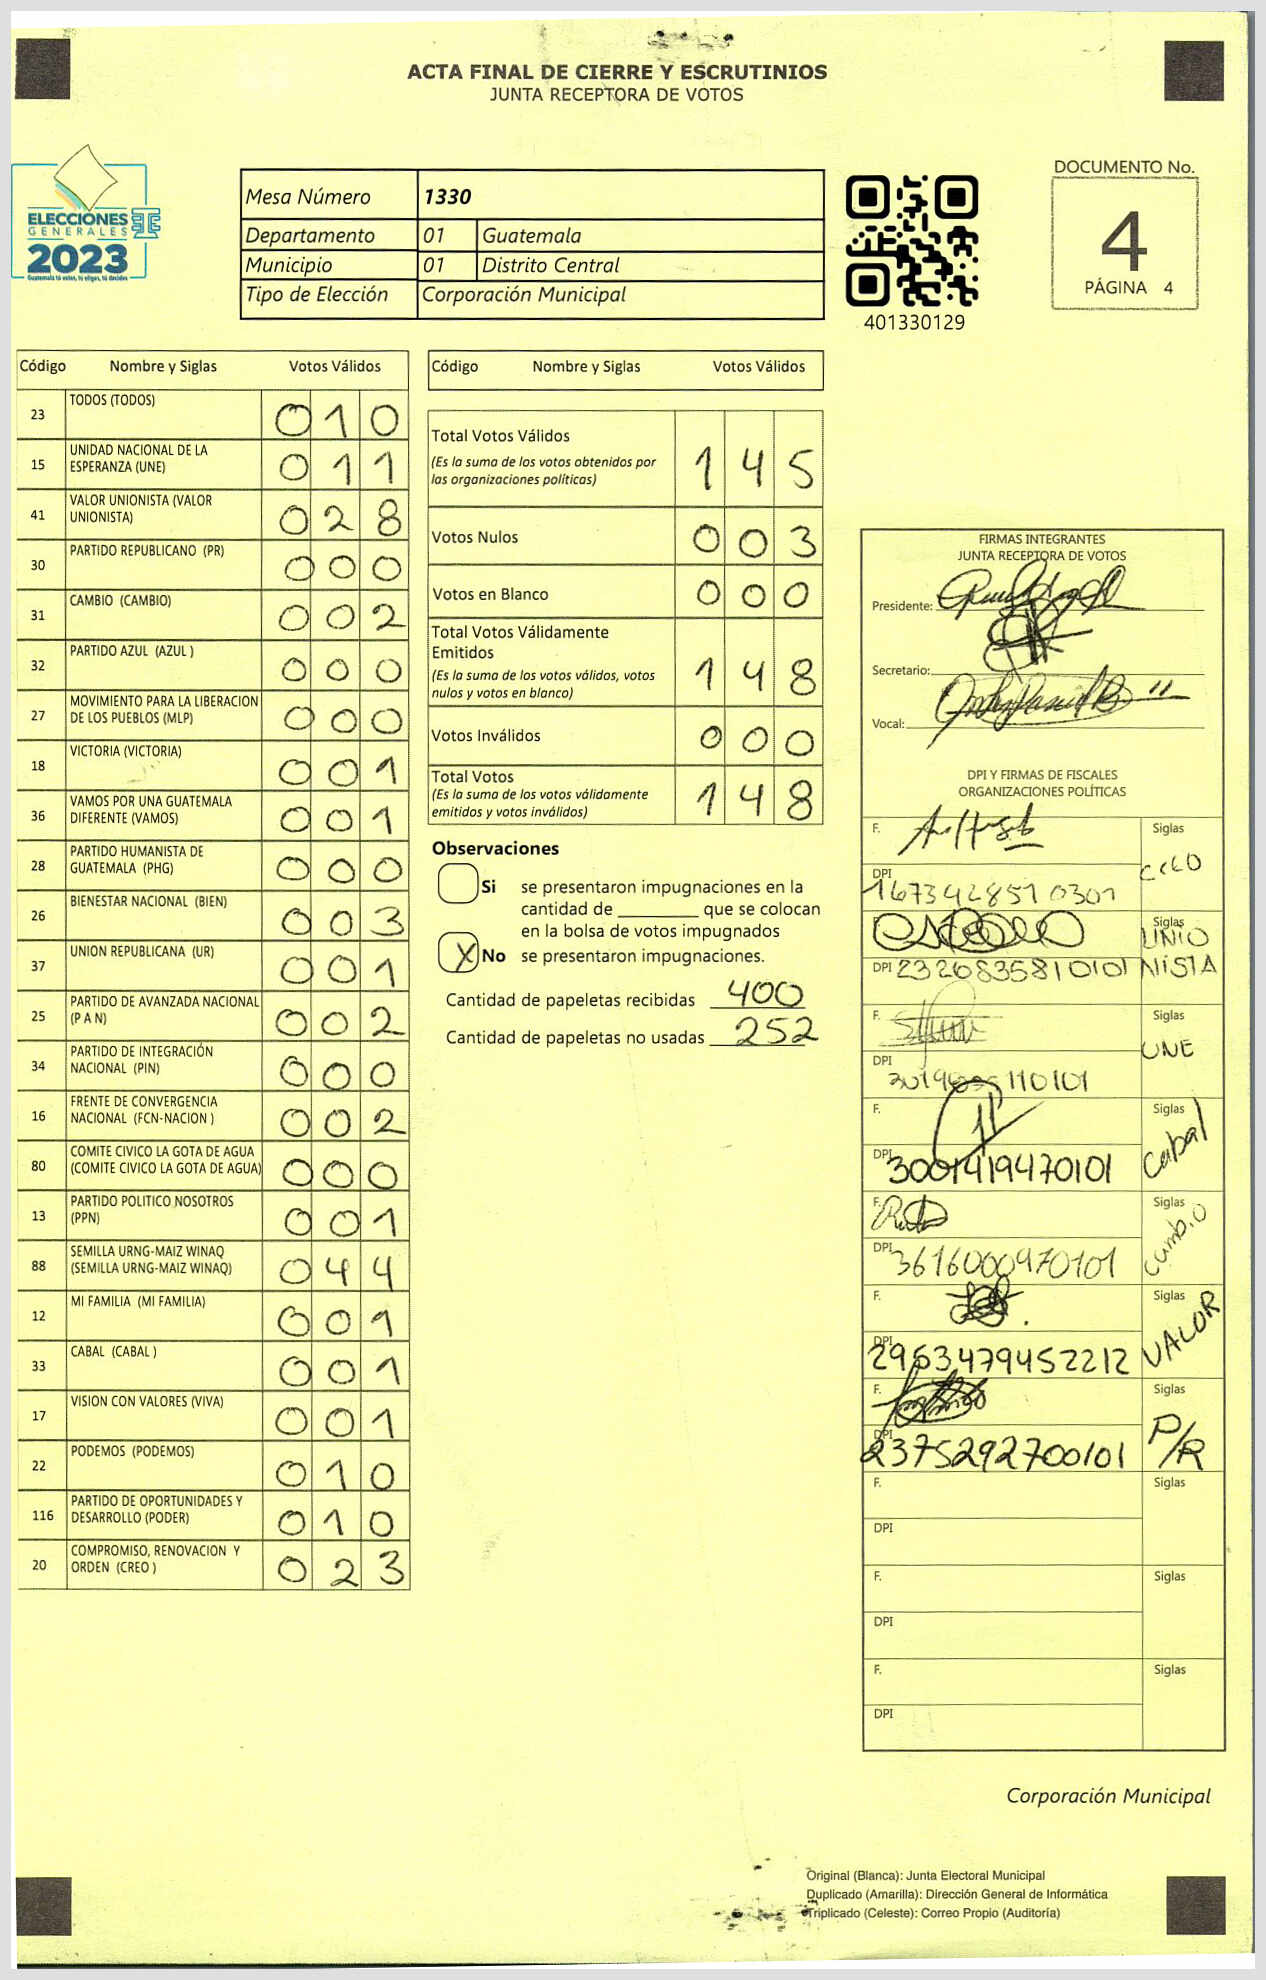 ACTA FINAL DE CIERRE Y ESCRUTINIOS
JUNTA RECEPTORA DE VOTOS
ELECCIONES
GENERALES
2023
Guatemala tú votas, tú eliges, tú decides
Mesa Número 1330
Departamento 01 Guatemala
Municipio 01 Distrito Central
Tipo de Elección Corporación Municipal
401330129
DOCUMENTO No.
4
PÁGINA 4
Código Nombre y Siglas Votos Válidos
23 TODOS (TODOS) 010
15 UNIDAD NACIONAL DE LA ESPERANZA (UNE) 011
41 VALOR UNIONISTA (VALOR UNIONISTA) 028
30 PARTIDO REPUBLICANO (PR) 000
31 CAMBIO (CAMBIO) 002
32 PARTIDO AZUL (AZUL ) 000
27 MOVIMIENTO PARA LA LIBERACION DE LOS PUEBLOS (MLP) 000
18 VICTORIA (VICTORIA) 001
36 VAMOS POR UNA GUATEMALA DIFERENTE (VAMOS) 001
28 PARTIDO HUMANISTA DE GUATEMALA (PHG) 000
26 BIENESTAR NACIONAL (BIEN) 003
37 UNION REPUBLICANA (UR) 001
25 PARTIDO DE AVANZADA NACIONAL (P A N) 002
34 PARTIDO DE INTEGRACIÓN NACIONAL (PIN) 000
16 FRENTE DE CONVERGENCIA NACIONAL (FCN-NACION ) 002
80 COMITE CIVICO LA GOTA DE AGUA (COMITE CIVICO LA GOTA DE AGUA) 000
13 PARTIDO POLITICO NOSOTROS (PPN) 001
88 SEMILLA URNG-MAIZ WINAQ (SEMILLA URNG-MAIZ WINAQ) 044
12 MI FAMILIA (MI FAMILIA) 001
33 CABAL (CABAL ) 001
17 VISION CON VALORES (VIVA) 001
22 PODEMOS (PODEMOS) 010
116 PARTIDO DE OPORTUNIDADES Y DESARROLLO (PODER) 010
20 COMPROMISO, RENOVACION Y ORDEN (CREO ) 023
Código Nombre y Siglas Votos Válidos
Total Votos Válidos 145
(Es la suma de los votos obtenidos por
las organizaciones políticas)
Votos Nulos 003
Votos en Blanco 000
Total Votos Válidamente
Emitidos 148
(Es la suma de los votos válidos, votos
nulos y votos en blanco)
Votos Inválidos 000
Total Votos 148
(Es la suma de los votos válidamente
emitidos y votos inválidos)
Observaciones
Si se presentaron impugnaciones en la
cantidad de ________ que se colocan
en la bolsa de votos impugnados
X No se presentaron impugnaciones.
Cantidad de papeletas recibidas 400
Cantidad de papeletas no usadas 252
FIRMAS INTEGRANTES
JUNTA RECEPTORA DE VOTOS
Presidente:
Secretario:
Vocal:
DPI Y FIRMAS DE FISCALES
ORGANIZACIONES POLÍTICAS
F. Siglas
DPI 1673428510301
F. Siglas UNIO
DPI 2326835810101 NISTA
F. Siglas UNE
DPI
F. Siglas Cabal
DPI 3001419470101
F. Siglas Cambio
DPI 3616000970101
F. Siglas VALOR
DPI 2953479452212
F. Siglas P/R
DPI 2375292700101
F. Siglas
DPI
F. Siglas
DPI
F. Siglas
DPI
Corporación Municipal
Original (Blanca): Junta Electoral Municipal
Duplicado (Amarilla): Dirección General de Informática
Triplicado (Celeste): Correo Propio (Auditoría)